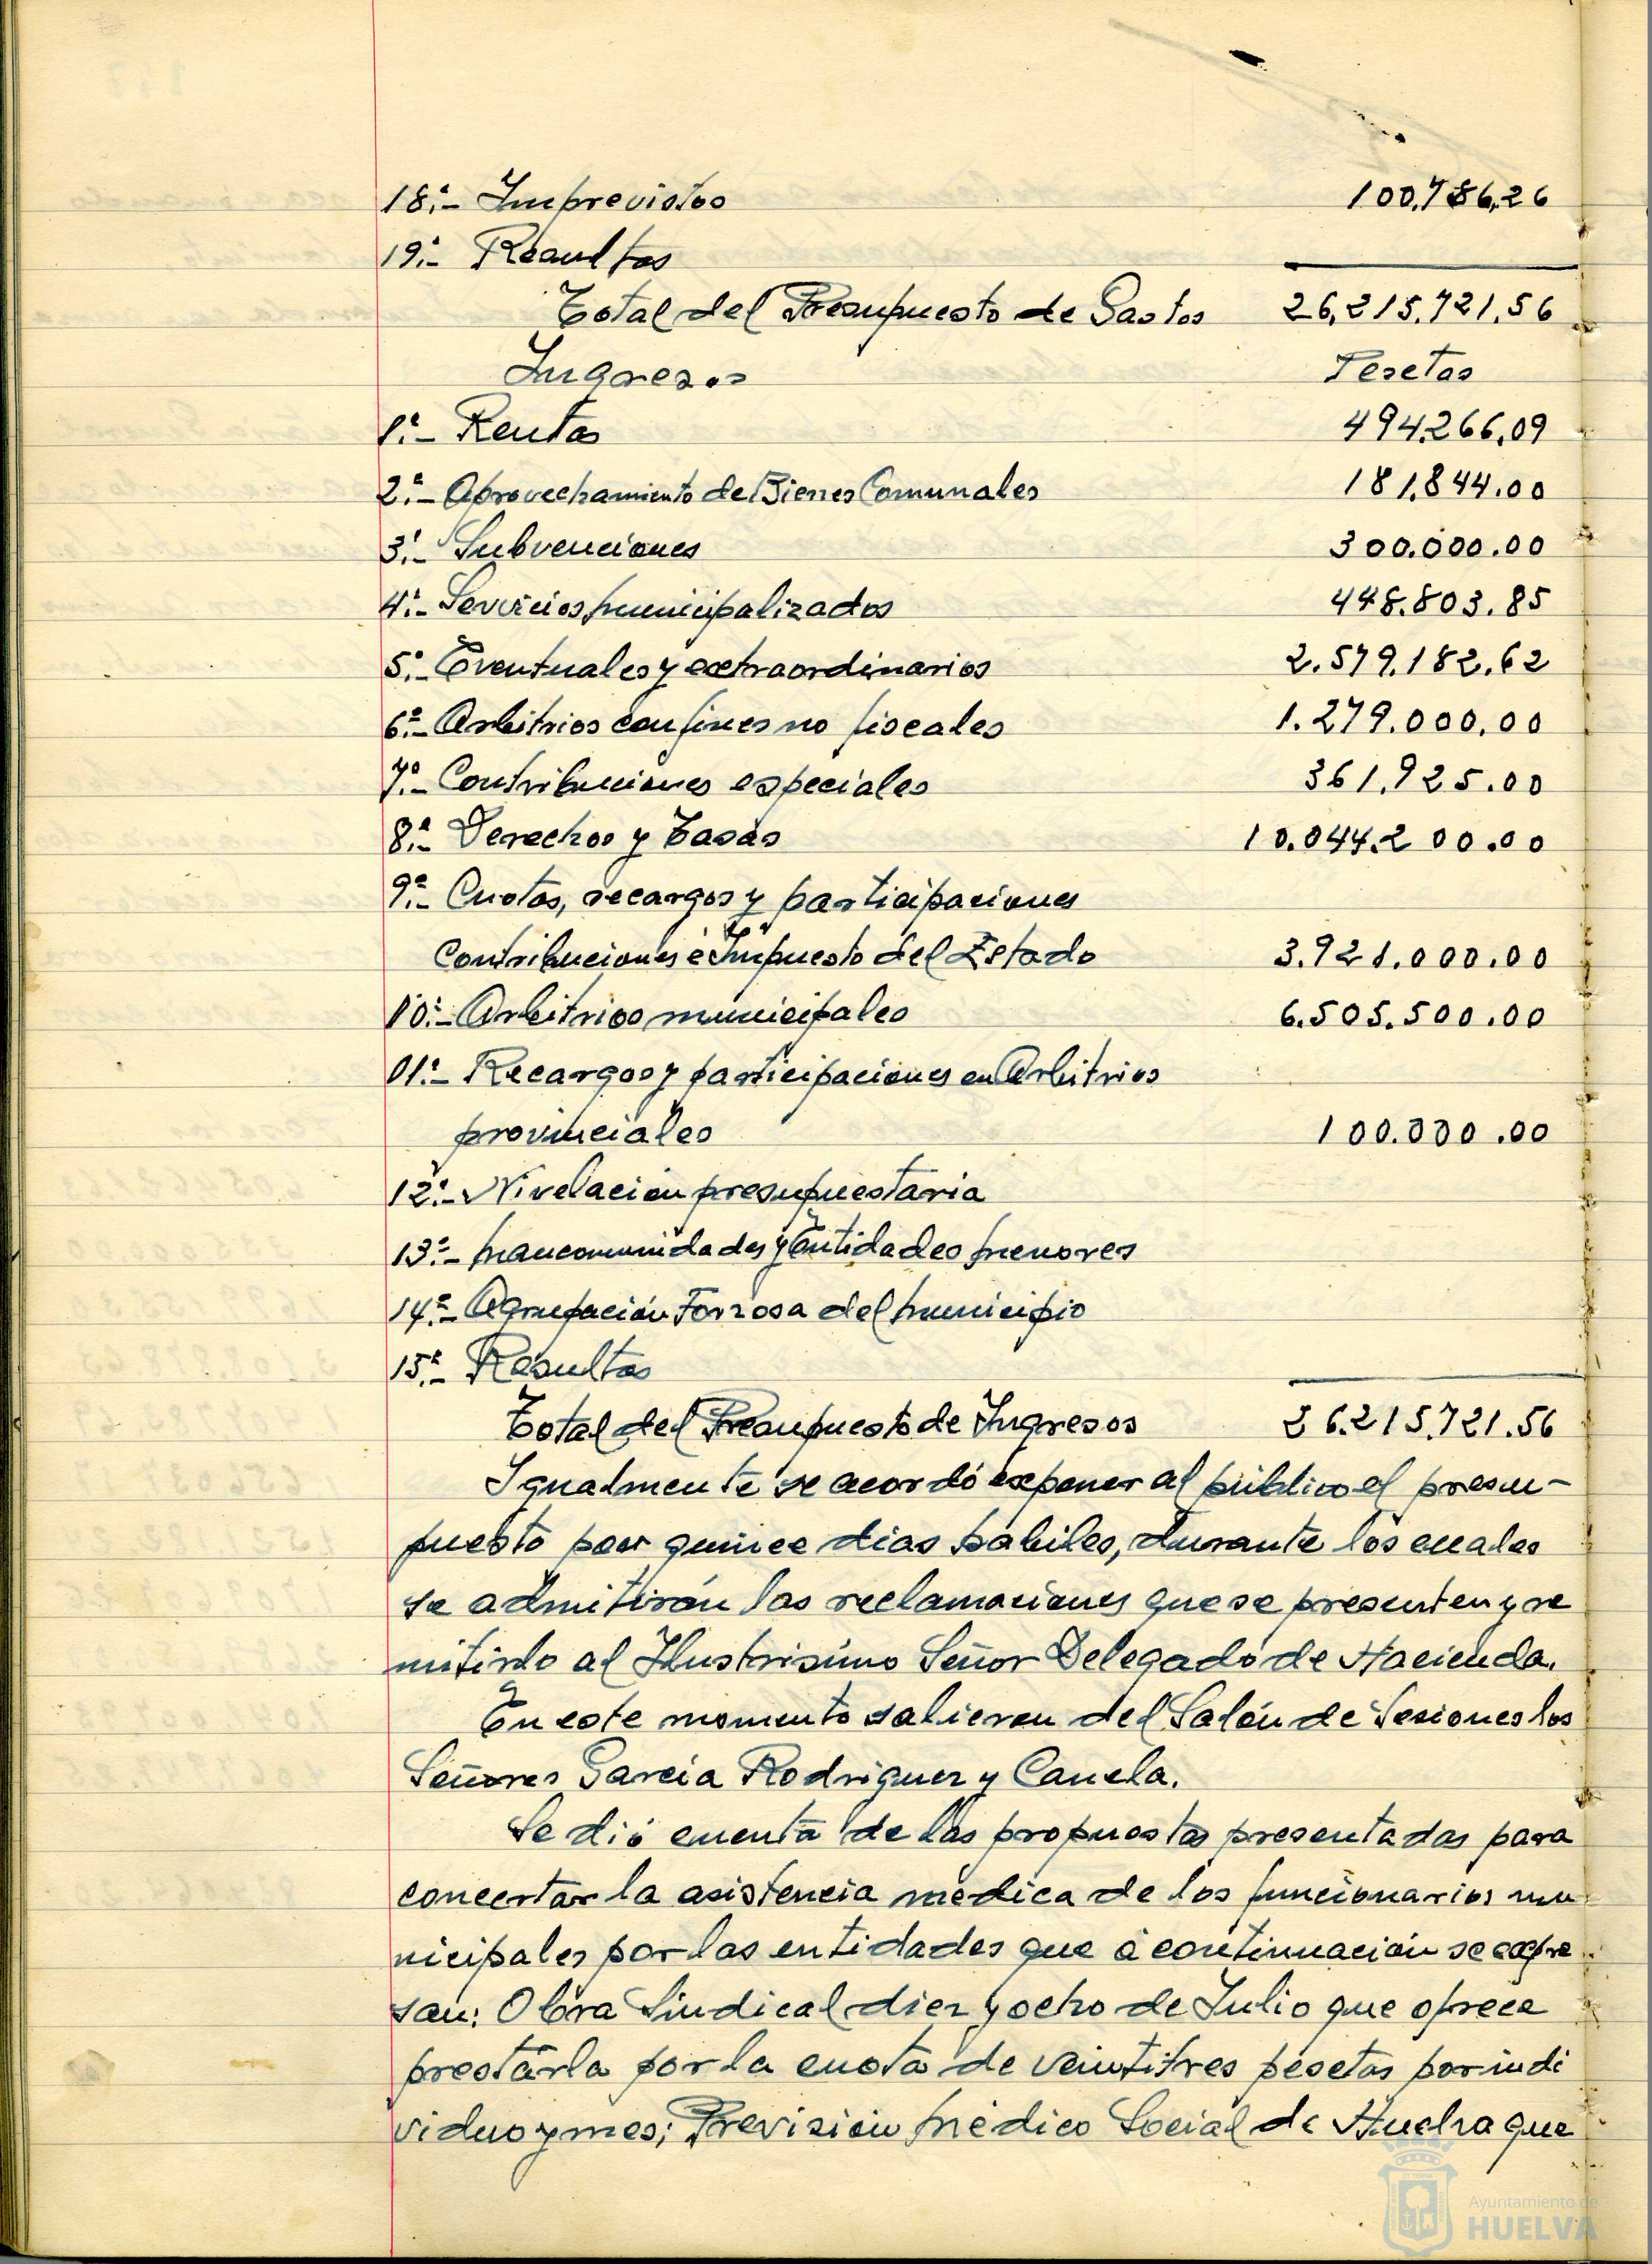 18ª.- Imprevistos 100.786,26
19ª.- Resultas
Total del Presupuesto de Gastos 26.215.721.56
Ingresos Pesetas
1ª.- Rentas 494.266,09
2ª.- Aprovechamiento de Bienes Comunales 181.844.00
3ª.- Subvenciones 300.000.00
4ª.- Servicios municipalizados 448.803.85
5ª.- Eventuales y extraordinarios 2.579.182.62
6ª.- Arbitrios con fines no fiscales 1.279.000.00
7ª.- Contribuciones especiales 361.925.00
8ª.- Derechos y Tasas 10.044.200.00
9ª.- Cuotas, recargos y participaciones
Contribuciones é Impuesto del Estado 3.921.000.00
10ª.- Arbitrios municipales 6.505.500.00
11ª.- Recargos y participaciones en Arbitrios
provinciales 100.000.00
12ª.- Nivelacion presupuestaria
13ª.- Mancomunidades y Entidades menores
14ª.- Agrupación Forzosa del municipio
15ª.- Resultas
Total del Presupuesto de Ingresos 26.215.721.56
Igualmente se acordó exponer al público el presu-
puesto por quince dias habiles, durante los cuales
se admitirán las reclamaciones que se presenten y re
mitirlo al Ilustrisimo Señor Delegado de Hacienda.
En este momento salieron del Salón de Sesiones los
Señores Garcia Rodriguez y Canela.
Se dió cuenta de las propuestas presentadas para
concertar la asistencia médica de los funcionarios mu
nicipales por las entidades que á continuación se expre
san: Obra Sindical diez y ocho de Julio que ofrece
prestarla por la cuota de veintitres pesetas por indi
viduo y mes; Previsión Médico Social de Huelva que
Ayuntamiento de
HUELVA